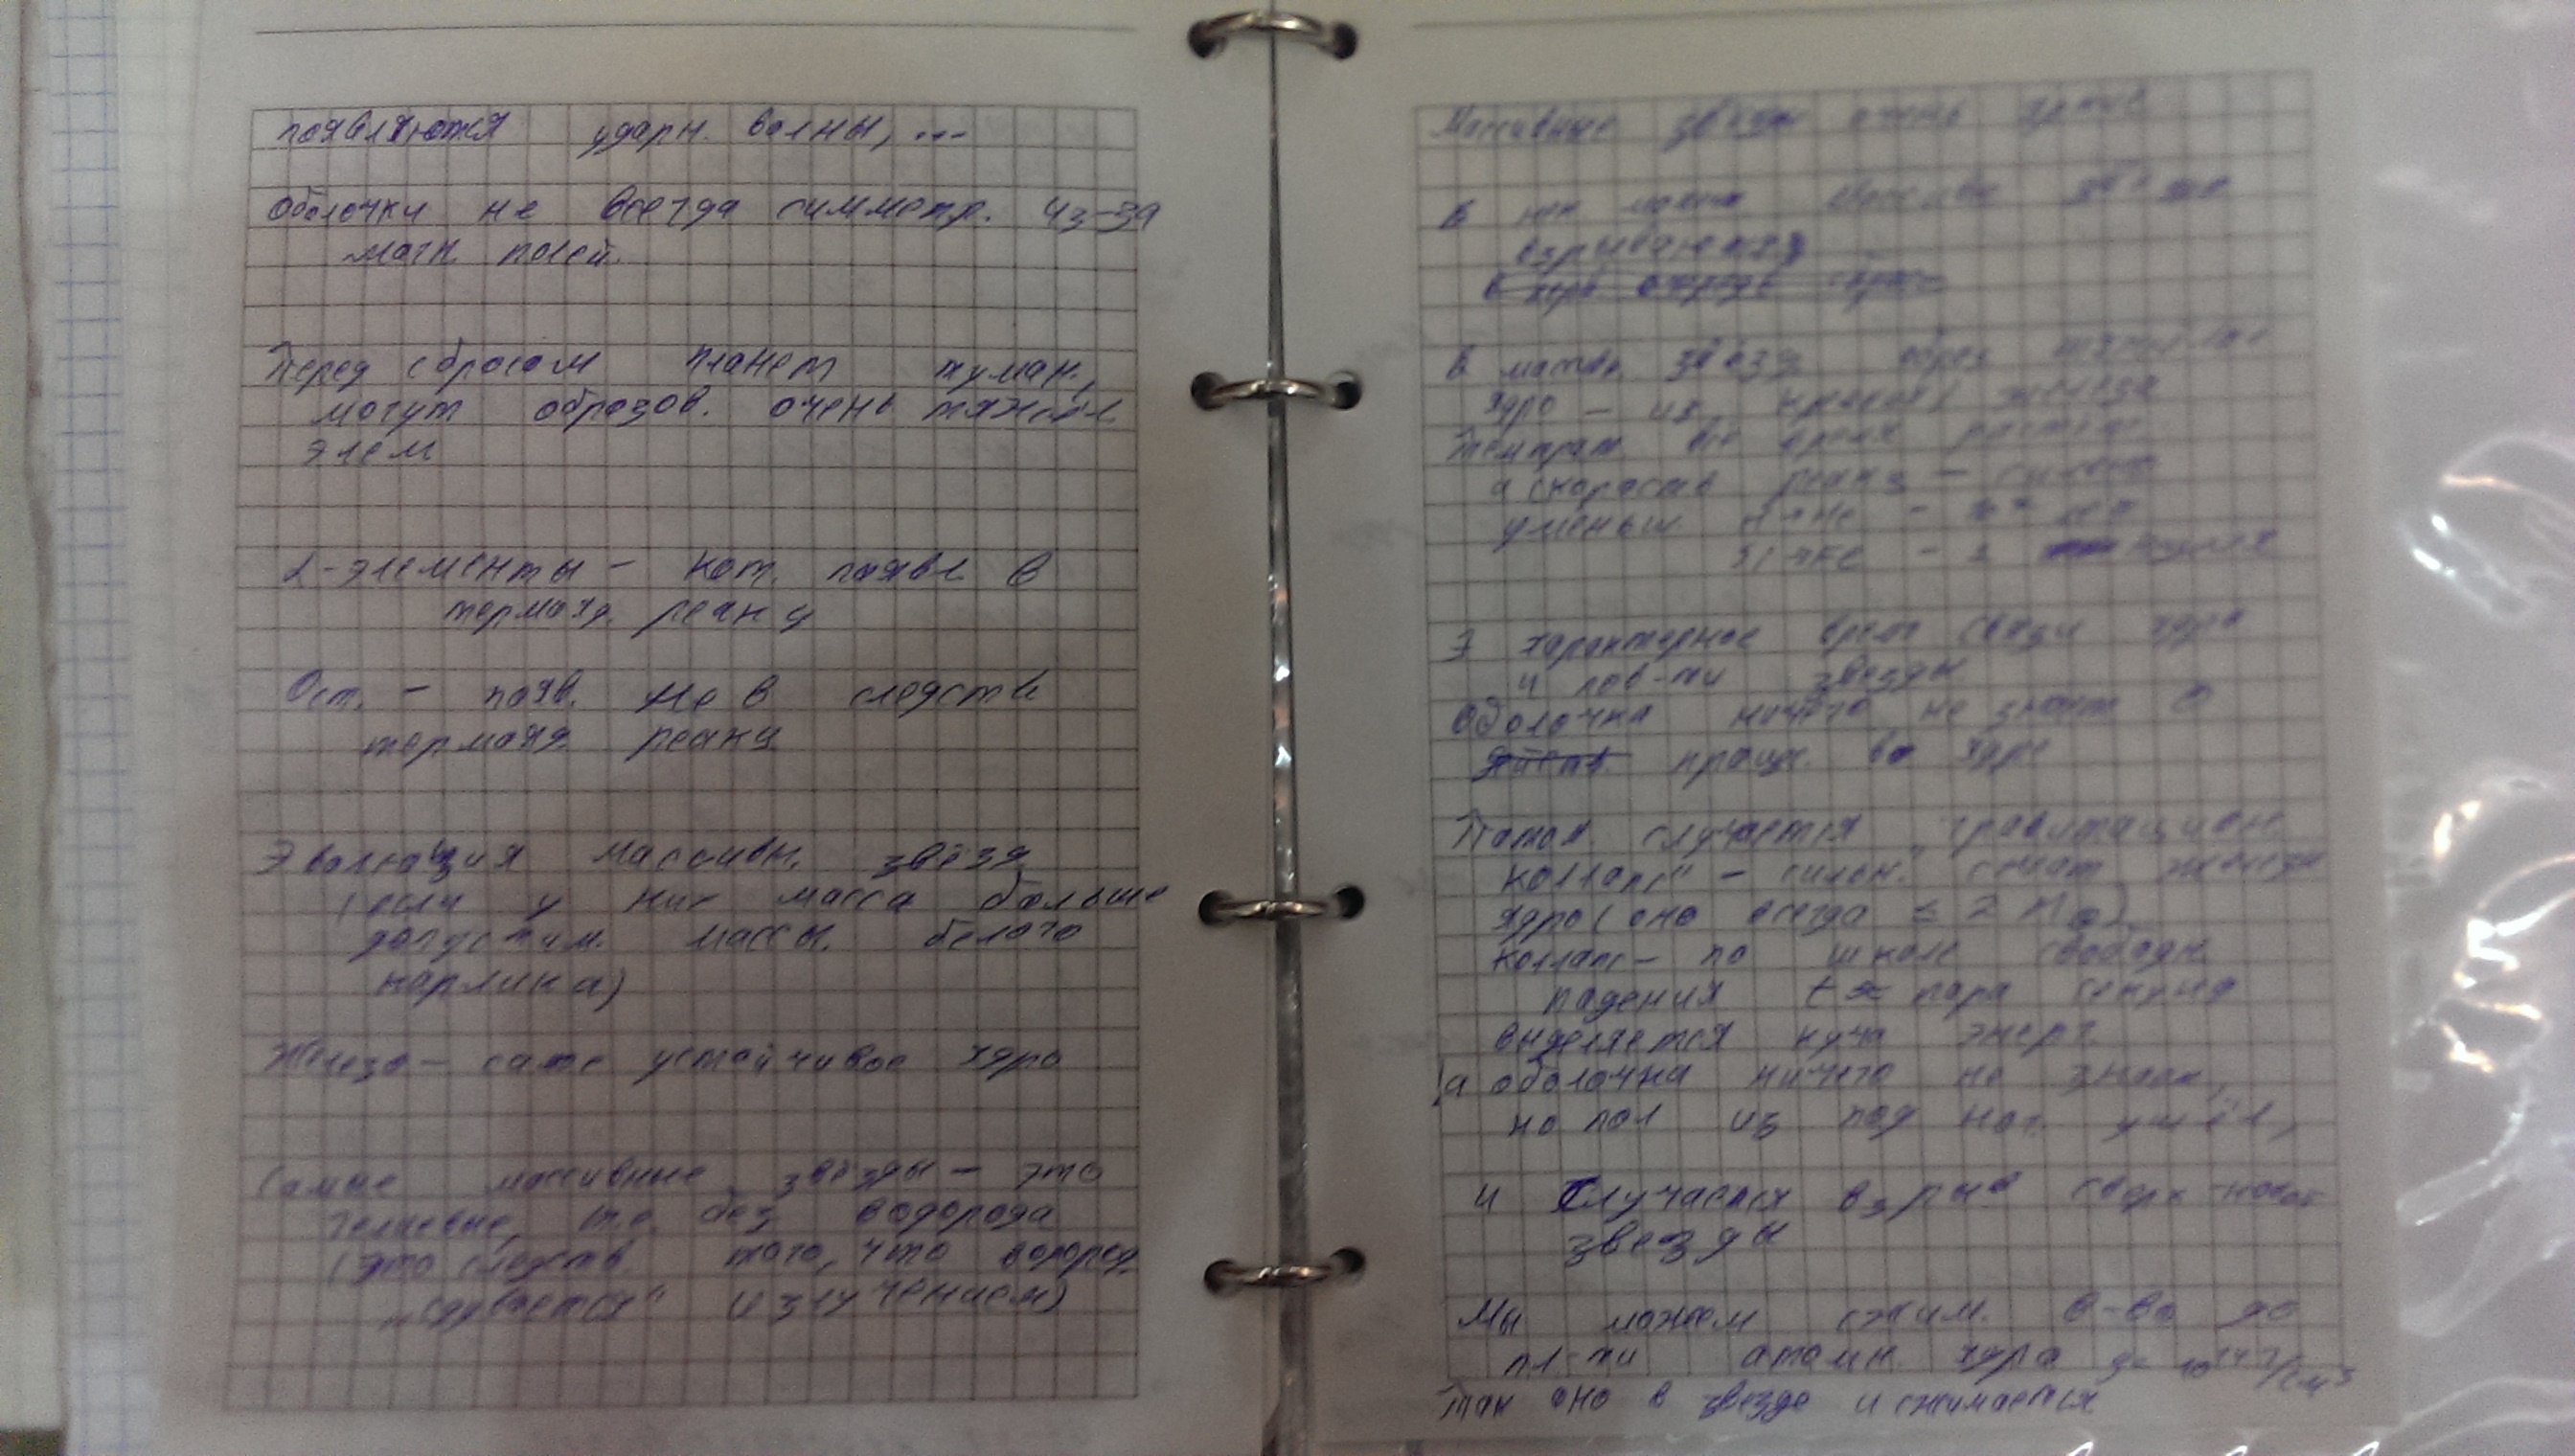 появляются ударн. волны, ...
Оболочки не всегда симметр. из-за
магн. полей.
Перед сбросом планет туман.,
могут образов. очень тяжёл
элем
α-элементы - кот. появл в
термояд. реакц
Ост. - появ. не в следств
термояд. реакц
Эволюция массивн. звёзд
(если у них масса больше
допустим. массы. белого
карлика)
Железо - самое устойчивое ядро
Самые массивные звёзды - это
гелиевые, т.е. без водорода
(это следств. того, что водород.
"сдувается" излучением)
Массивные звёзды очень яркие
В
взрываются
В звёзд образ
ядро - из железа
Темпрат. всё время растёт
а скорость реакц -
уменьш.
Э характерное врем связи ядра
и пов-ти звезды
Оболочка ничего не знает о
процес. в ядре
Потом случается "гравитацион
коллапс" - сильн. сжат железн
ядро (оно всегда ≤ 2 M⊙)
коллапс - по шкале свободн.
падения t ≈ пара секунд
выделяется куча энерг.
а оболочка ничего не знает,
но пол из под ног ушёл,
и случается взрыв сверх-новой
звезды
Мы можем сжим. в-во до
пл-ти атомн. ядра 10¹⁴ г/см³
Так оно в звезде и сжимается